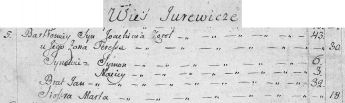 Wieś Jurewicze
5. Bartłomiej Syn Joachima 43.
u Jego Żona Teresa 30
Synowie Symon 6
Maciey 3
Brat Jan 32
Siostra Marta 18